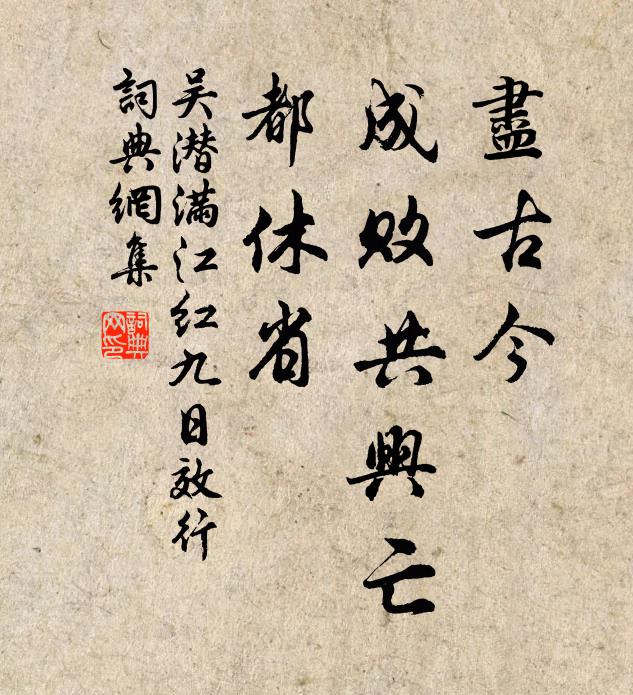 盡古今
成敗共興亡
都休省
吴潜满江红九日效行
詞典網集
詞典網印